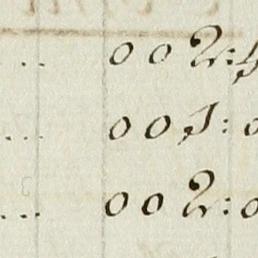 ... 002:
... 001:0
... 002:0